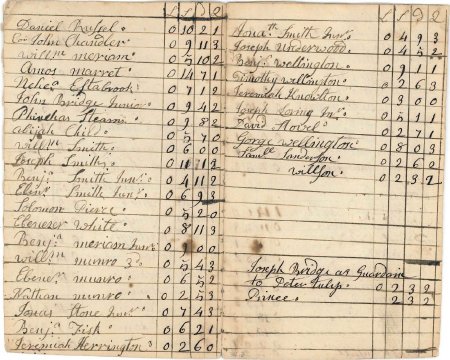 £ S D 2
Daniel Russel. 0 10 2 1
Con John Chandler. 0 9 11 3
Willm meriam. 0 5 10 2
Amos marret. 0 14 7 1
Nehe. Estabrook. 0 7 1 2
John Bridge Junior. 0 9 4 2
Phinehas Stearns. 0 9 8 2
abijah Child. 0 5 7 0
willm Smith. 0 6 0 0
Joseph Smith. 0 11 11 3
Benj. Smith Junr. 0 4 11 2
Ebenr. Smith Junr. 0 6 9 3
Solomon Peirce. 0 5 2 0
Ebenezer White. 0 8 11 3
Benj. meriam Junr. 0 9 0 0
willm munro 3d. 0 5 4 3
Ebenr. munro. 0 6 5 2
Nathan munro. 0 2 5 3
Jonas Stone Junr. 0 7 4 3
Benj. Fisk. 0 6 2 1
Jeremiah Herrington. 0 2 6 0
£ S D 2
Jonath. Smith Junr. 0 4 9 3
Joseph Underwood. 0 4 5 2
Benj. Wellington. 0 9 1 1
Timothy willington. 0 2 6 3
Jeremiah Knowlton. 0 3 0 0
Joseph Loring Jnr. 0 5 1 1
David 0 2 7 1
George wellington. 0 8 0 3
Samll. Sanderson. 0 2 6 2
willson. 0 2 3 2
Joseph Bridge as Guardian
to Peter Tulip. 0 2 3 2
Prince. 2 3 2